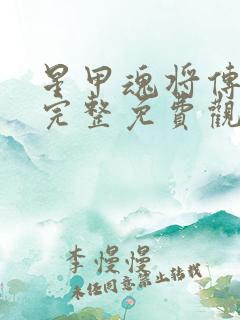 星甲魂将傳
完整免費觀
李慢慢
未經同意禁止轉載